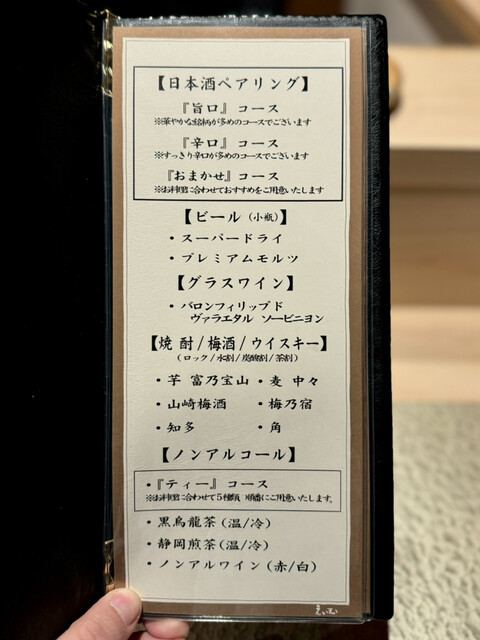 【日本酒ペアリング】
『旨口』コース
※華やかな銘柄が多めのコースでございます
『辛口』コース
※すっきり辛口が多めのコースでございます
『おまかせ』コース
※お料理に合わせておすすめをご用意いたします
【ビール（小瓶）】
・スーパードライ
・プレミアムモルツ
【グラスワイン】
・バロンフィリップド
ヴァラエタル ソービニヨン
【焼酎/梅酒/ウイスキー】
（ロック/水割/炭酸割/茶割）
・芋 富乃宝山 ・麦 中々
・山崎梅酒 ・梅乃宿
・知多 ・角
【ノンアルコール】
・『ティー』コース
※お料理に合わせて5種類、順番にご用意いたします。
・黒烏龍茶（温/冷）
・静岡煎茶（温/冷）
・ノンアルワイン（赤/白）